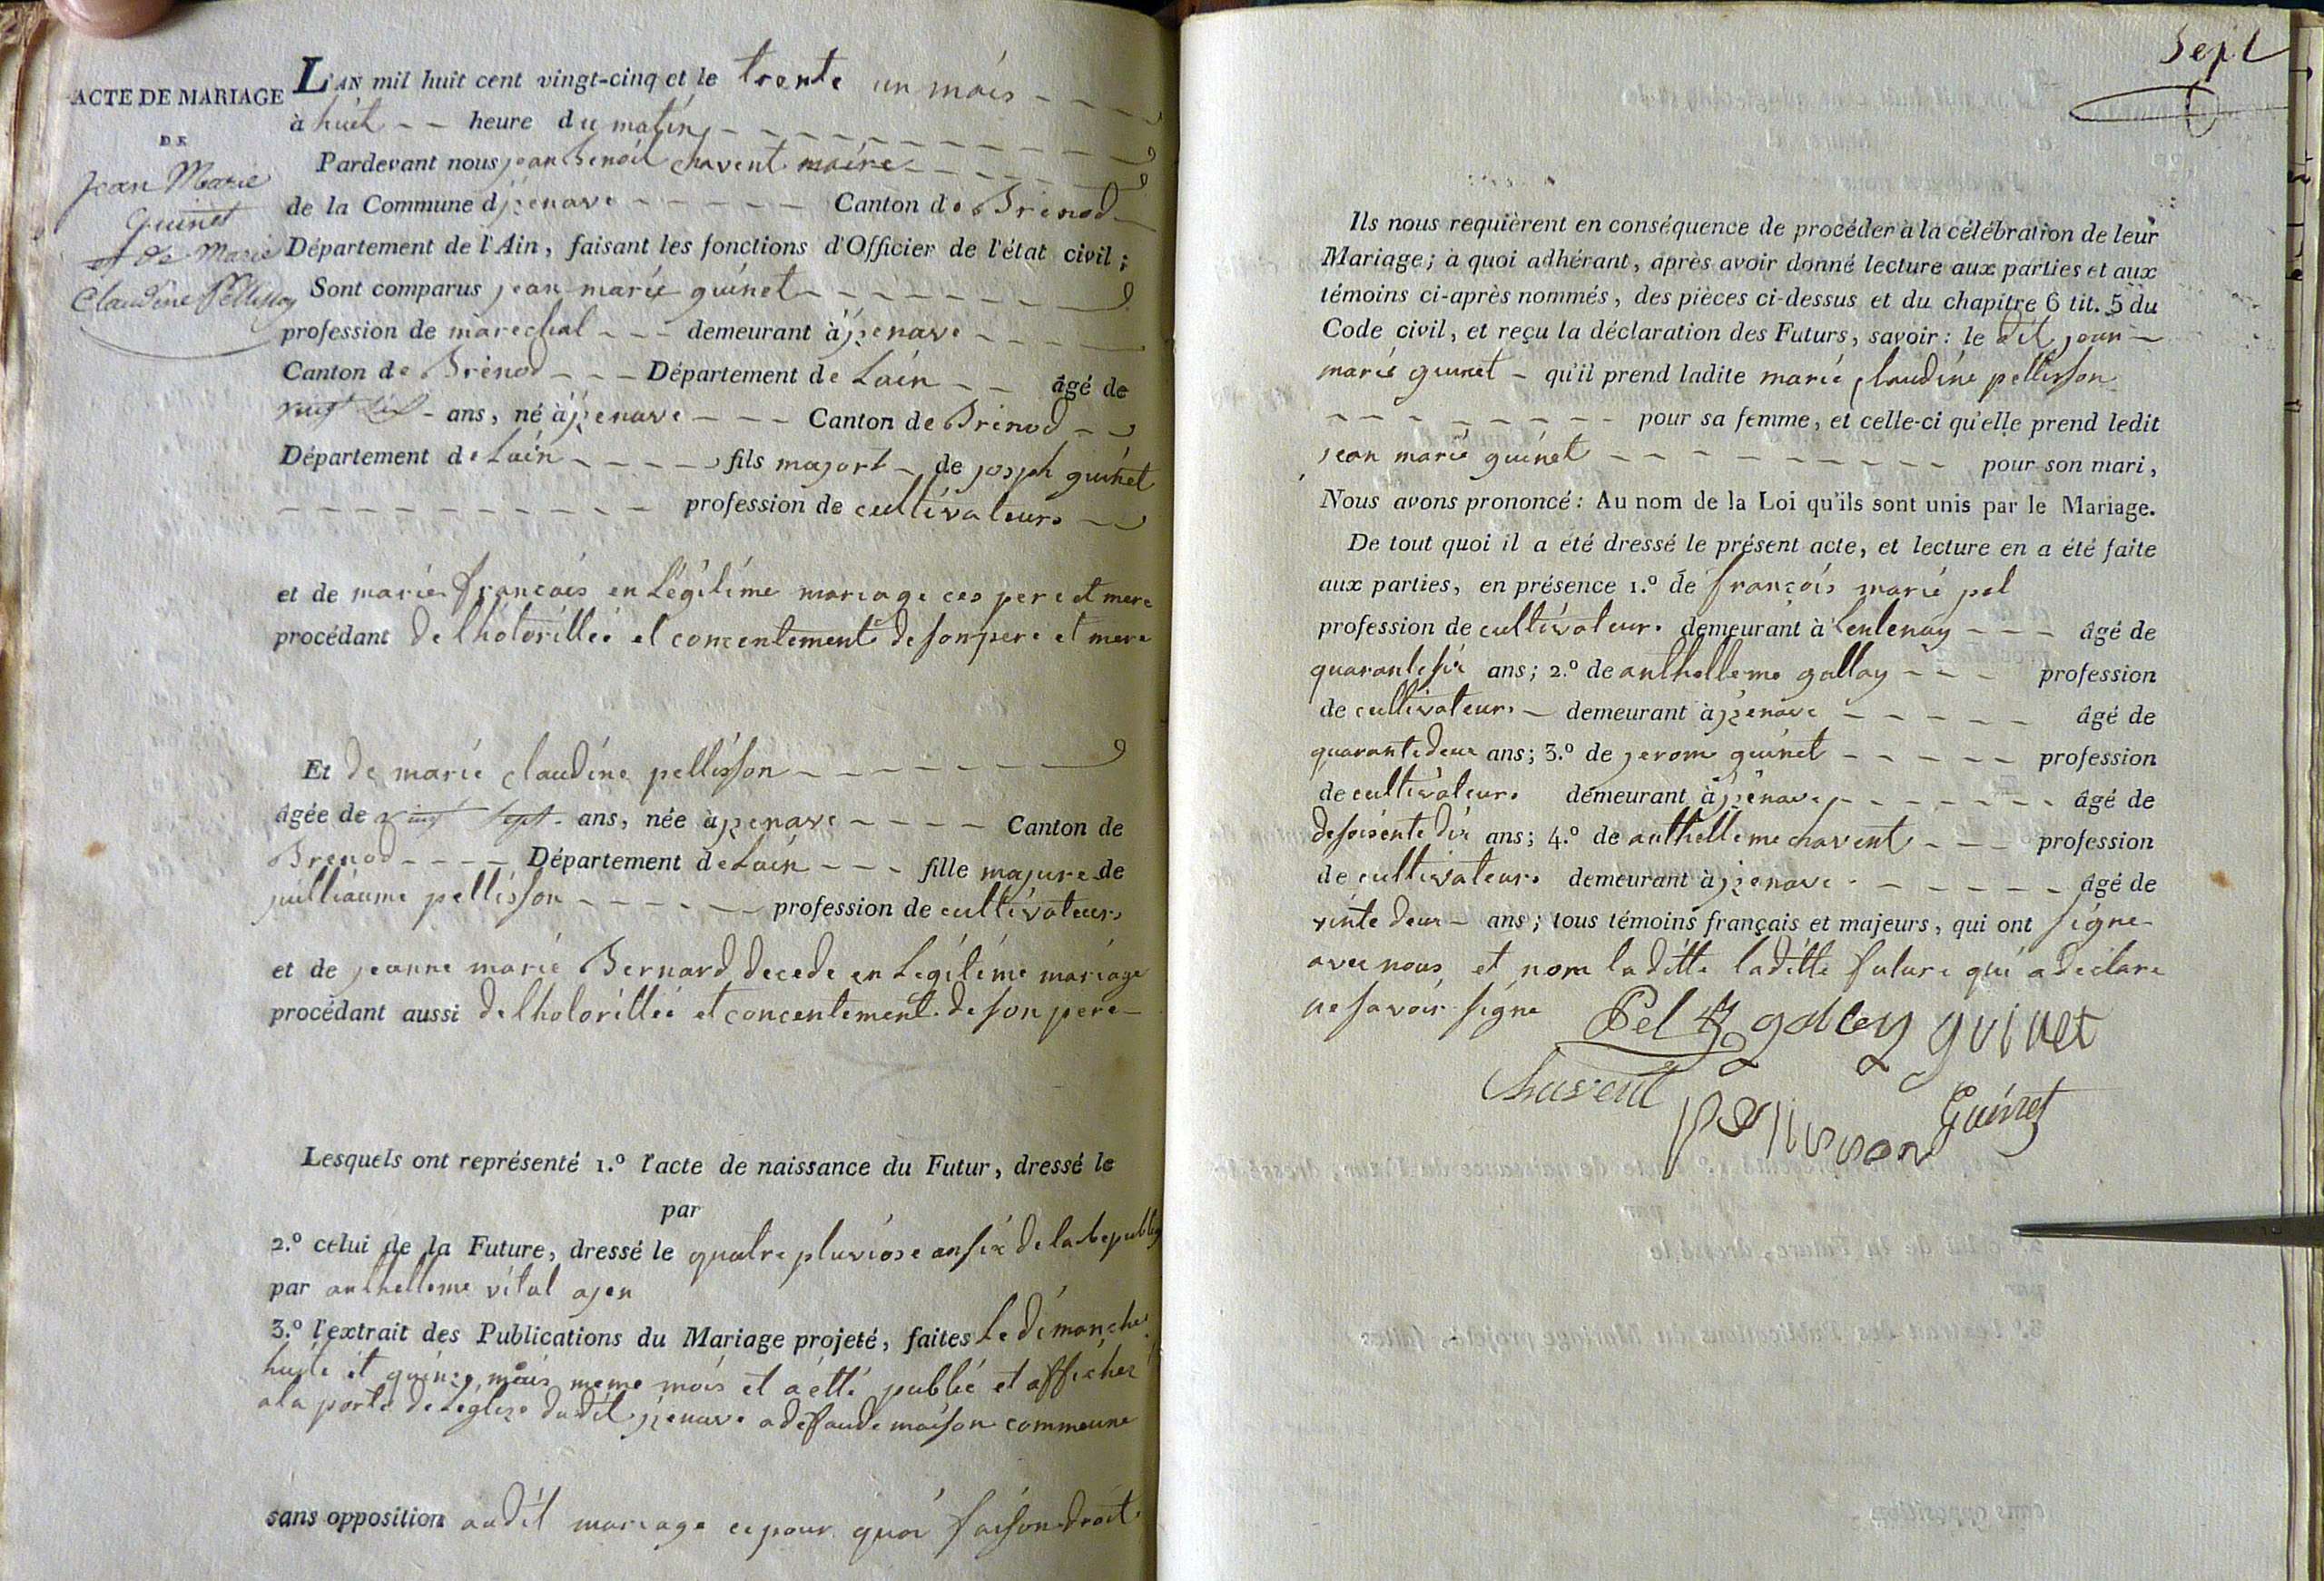 ACTE DE MARIAGE
DE
Jean Marie
Guinet
et de Marie
Claudine Pellisson
L'AN mil huit cent vingt-cinq et le trente un mais
à huit heure du matin
Pardevant nous jean benoit chavent maire
de la Commune djzenave Canton de Brenod
Département de l'Ain, faisant les fonctions d'Officier de l'état civil ;
Sont comparus jean marie guinet
profession de marechal demeurant à jzenave
Canton de Brénod Département de Lain âgé de
vingt ans, né à jzenave Canton de Brénod
Département de Lain fils majort de josph guinet
profession de cultivateur
et de marie francois en Légitime mariage ces pere et mere
procédant de lhotorillée et concentement de son pere et mere
Et de marie claudine pellisson
âgée de vingt sept ans, née à jzenave Canton de
Brenod Département de Lain fille majure de
julliaume pellisson profession de cultivateur
et de jeanne marie Bernard decede en Légitime mariage
procédant aussi de lhotorillée et concentement de son pere
Lesquels ont représenté 1.º l'acte de naissance du Futur, dressé le
par
2.º celui de la Future, dressé le quatre pluviose an six de la republiq
par anthelleme vital ajen
3.º l'extrait des Publications du Mariage projeté, faites Le dimanche
huite et quinze mais meme mois et a étté publié et afficher
a la porte de Léglize dudit jzenave a defaude maison commeune
sans opposition audit mariage ce pour quoi faison droit
Sept
Ils nous requièrent en conséquence de procéder à la célébration de leur
Mariage ; à quoi adhérant, après avoir donné lecture aux parties et aux
témoins ci-après nommés, des pièces ci-dessus et du chapitre 6 tit. 5 du
Code civil, et reçu la déclaration des Futurs, savoir : le dit jean
marie guinet qu'il prend ladite marie claudine pellisson
pour sa femme, et celle-ci qu'elle prend ledit
jean marie guinet pour son mari,
Nous avons prononcé : Au nom de la Loi qu'ils sont unis par le Mariage.
De tout quoi il a été dressé le présent acte, et lecture en a été faite
aux parties, en présence 1.º de françois marie pel
profession de cultivateur demeurant à Lentenay âgé de
quarante six ans ; 2.º de anthelleme gallay profession
de cultivateur demeurant à jzenave âgé de
quarante deux ans ; 3.º de jerome guinet profession
de cultivateur demeurant à jzénave âgé de
de soisente dix ans ; 4.º de anthelleme chavent profession
de cultivateur demeurant à jzenave âgé de
vinte deux ans ; tous témoins français et majeurs, qui ont signe
avec nous et nom laditte laditte future qui a déclare
ne savoir signe Pel galley guinet
Chavent
pellisson Guinet